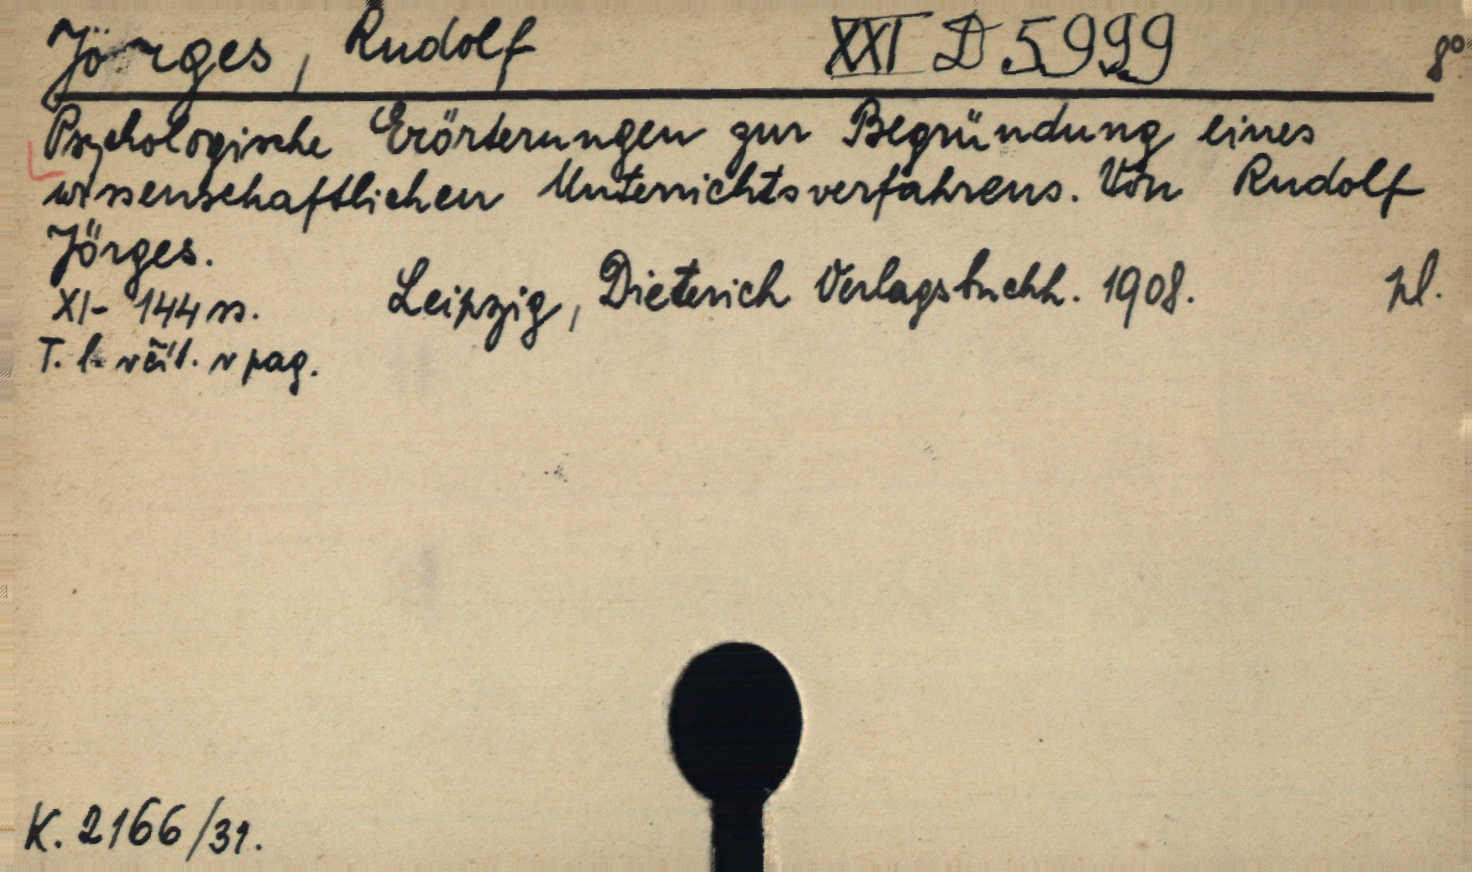 Jörges, Rudolf XXI D 5999 8°
Psychologische Erörterungen zur Begründung eines
wissenschaftlichen Unterrichtsverfahrens. Von Rudolf
Jörges.
XI- 144 ss. Leipzig, Dieterich Verlagsbuchh. 1908. pl.
T. l. včít. v pag.
K. 2166/31.